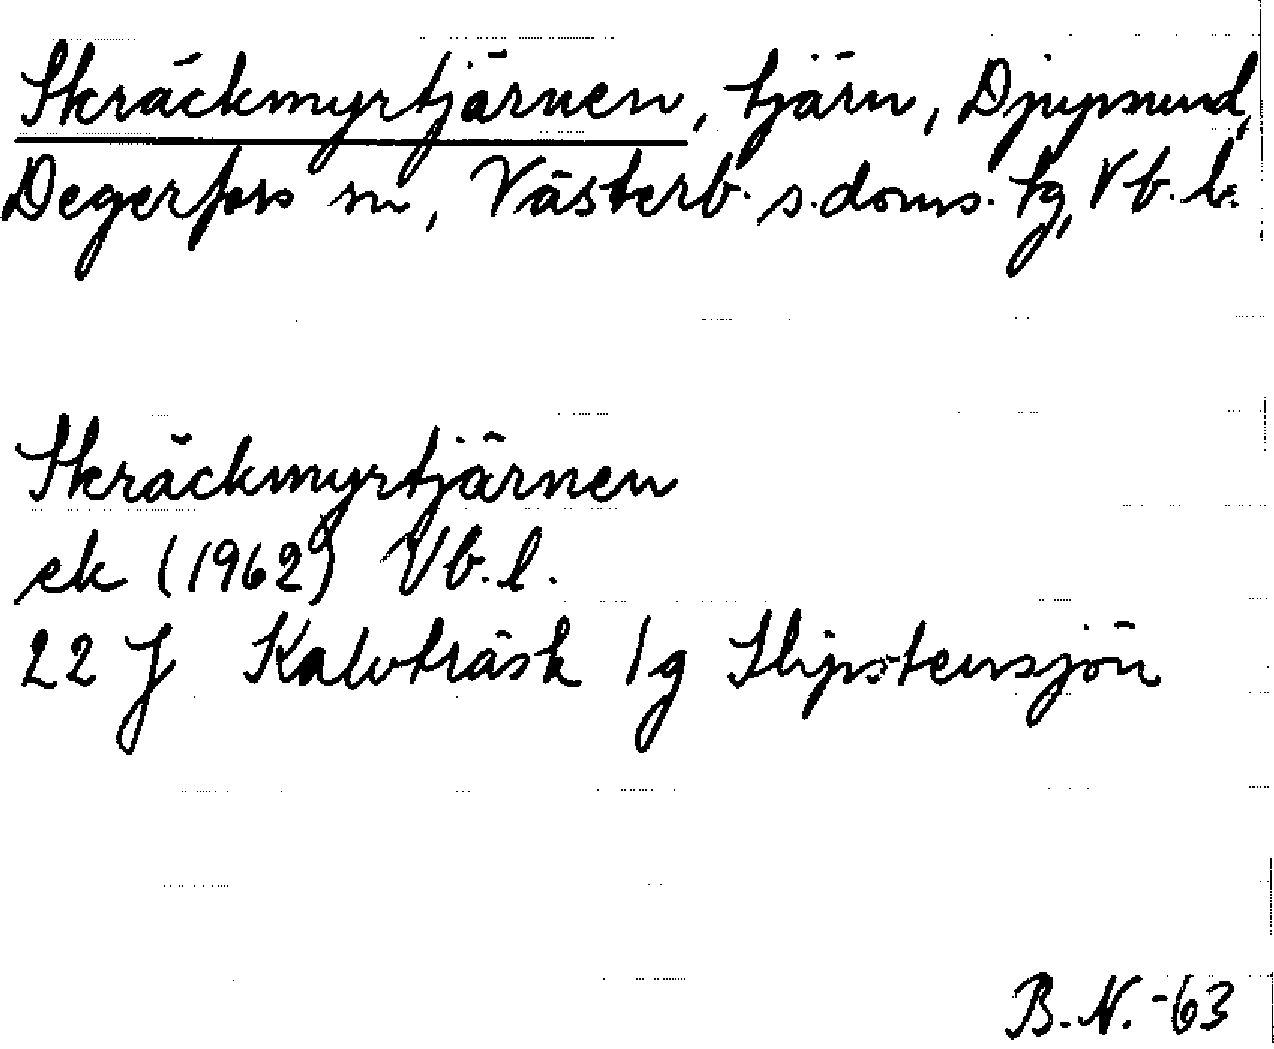 Skräckmyrtjärnen, tjärn, Djupsund,
Degerfors sn, Västerb. s. doms. tg, Vb. l.
Skräckmyrtjärnen
ek (1962) Vb. l.
22 J Kalvträsk 1g Slipstensjön
B. N. -63